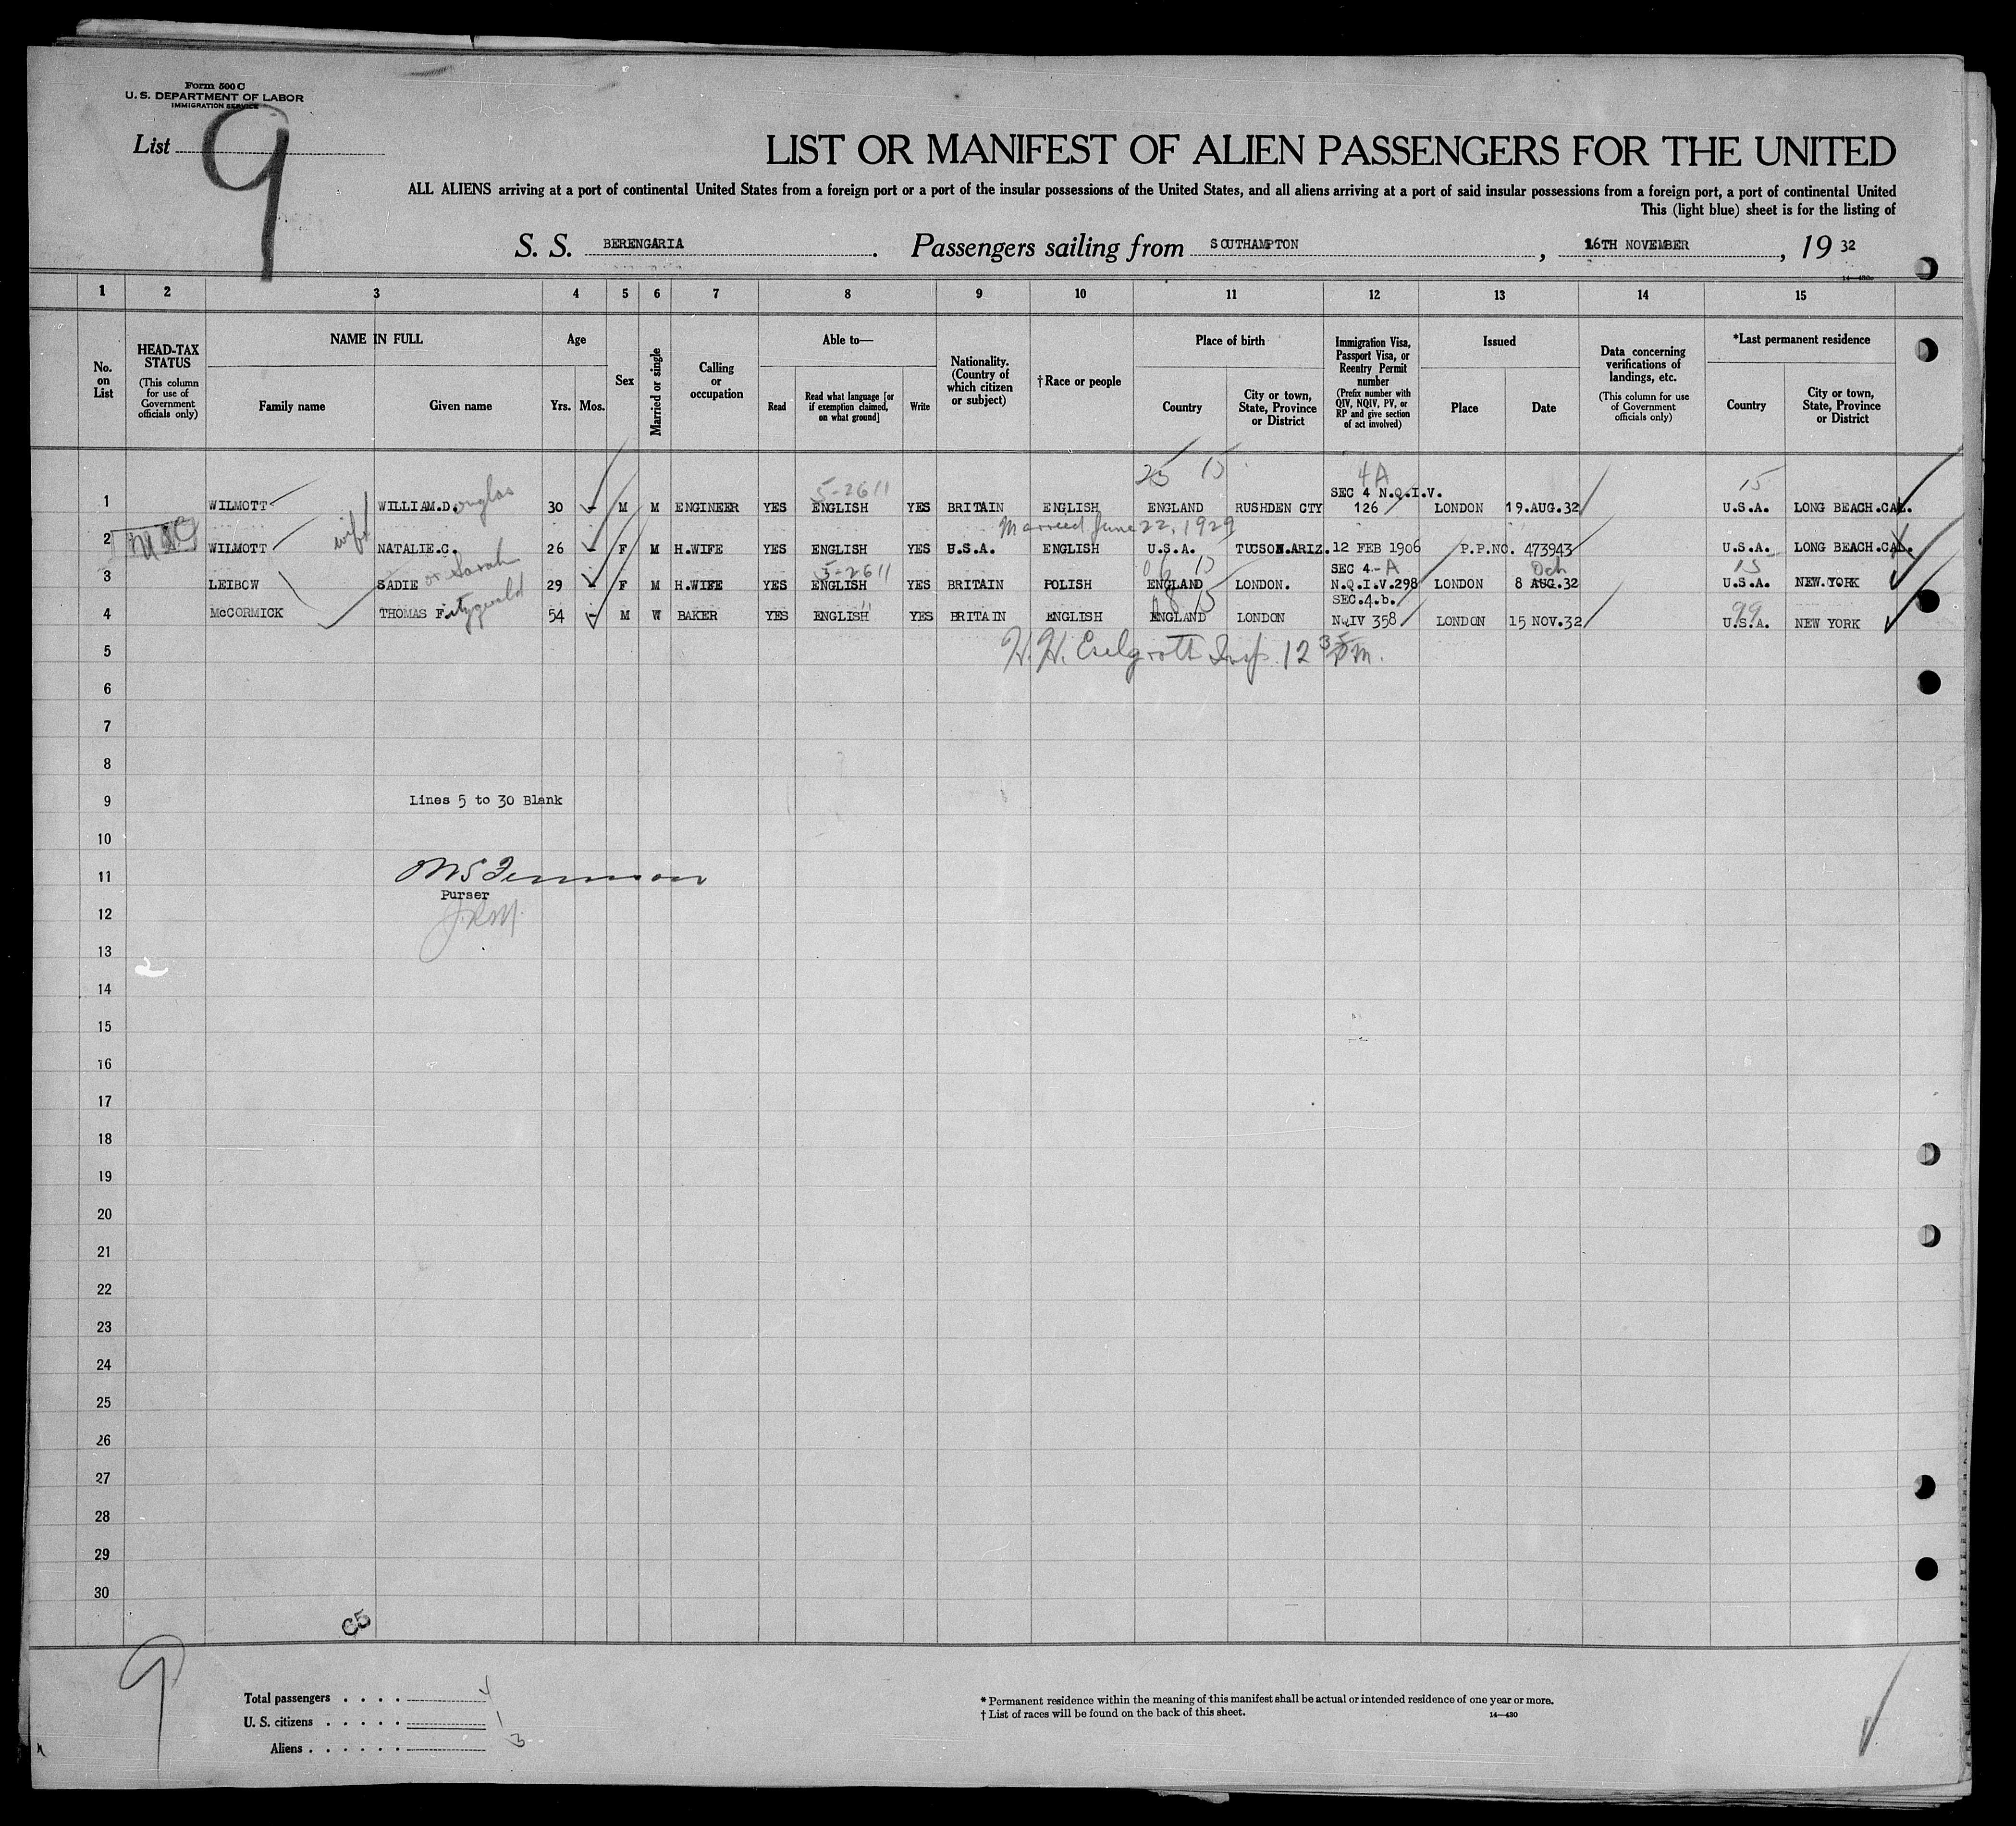 Form 500 C
U. S. DEPARTMENT OF LABOR
IMMIGRATION SERVICE
List 9
LIST OR MANIFEST OF ALIEN PASSENGERS FOR THE UNITED
ALL ALIENS arriving at a port of continental United States from a foreign port or a port of the insular possessions of the United States, and all aliens arriving at a port of said insular possessions from a foreign port, a port of continental United
This (light blue) sheet is for the listing of
S. S. BERENGARIA. Passengers sailing from SOUTHAMPTON, 16TH NOVEMBER, 19 32
14—430a
1 2 3 4 5 6 7 8 9 10 11 12 13 14 15
No. on List
HEAD-TAX STATUS
(This column for use of Government officials only)
NAME IN FULL
Family name
Given name
Age
Yrs. Mos.
Sex
Married or single
Calling or occupation
Able to—
Read
Read what language [or if exemption claimed, on what ground]
Write
Nationality. (Country of which citizen or subject)
† Race or people
Place of birth
Country
City or town, State, Province or District
Immigration Visa, Passport Visa, or Reentry Permit number
(Prefix number with QIV, NQIV, PV, or RP and give section of act involved)
Issued
Place
Date
Data concerning verifications of landings, etc.
(This column for use of Government officials only)
*Last permanent residence
Country
City or town, State, Province or District
25 15 4A 15
5-2611 SEC 4 N.Q.I.V.
1 WILMOTT WILLIAM.D.ouglas 30 - M M ENGINEER YES ENGLISH YES BRITAIN ENGLISH ENGLAND RUSHDEN CTY 126 LONDON 19.AUG.32 U.S.A. LONG BEACH.CAL.
wife Married June 22, 1929
2 USC WILMOTT NATALIE.C. 26 - F M H.WIFE YES ENGLISH YES U.S.A. ENGLISH U.S.A. TUCSON.ARIZ. 12 FEB 1906 P.P.NO. 473943 U.S.A. LONG BEACH.CAL.
or Sarah 5-2611 06 15 SEC 4-A Och 15
3 LEIBOW SADIE 29 F M H.WIFE YES ENGLISH YES BRITAIN POLISH ENGLAND LONDON. N.Q.I.V.298 LONDON 8 AUG.32 U.S.A. NEW.YORK
08 15 SEC.4.b. 99
4 McCORMICK THOMAS F.itzgerald 54 - M W BAKER YES ENGLISH YES BRITAIN ENGLISH ENGLAND LONDON NQIV 358 LONDON 15 NOV.32 U.S.A. NEW YORK
5 H. H. Insp. 12 35 PM.
6
7
8
9 Lines 5 to 30 Blank
10
11
Purser
12 J.R.M.
13
14
15
16
17
18
19
20
21
22
23
24
25
26
27
28
29
30
C5
9
Total passengers . . . .
U. S. citizens . . . . . 1
Aliens . . . . . . 3
* Permanent residence within the meaning of this manifest shall be actual or intended residence of one year or more.
† List of races will be found on the back of this sheet.
14—430